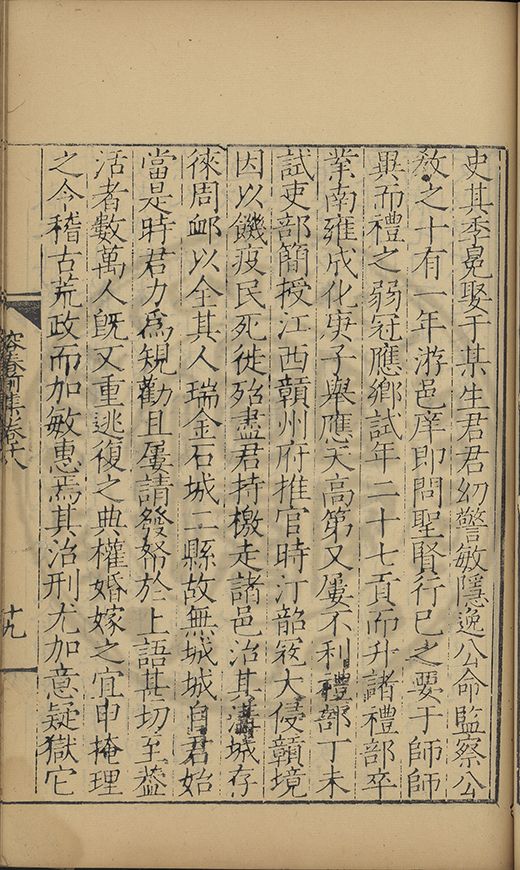 史其季冕娶于某生君君幼警敏隱逸公命監察公
教之十有一年游邑庠即問聖賢行己之要于師師
異而禮之弱冠應鄉試年二十七貢而升諸禮部卒
業南雍成化庚子舉應天高第又屢不利禮部丁未
試吏部簡授江西贛州府推官時汀韶寇大侵贛境
因以饑疫民死徙殆盡君持檄走諸邑治其城存
徠周䘏以全其人瑞金石城二縣故無城城自君始
當是時君力為規勸且屢請發帑於上語甚切至葢
活者數萬人旣又重逃復之典權婚嫁之宜申掩理
之令稽古荒政而加敏惠焉其治刑尤加意疑獄它
集卷十八
十九